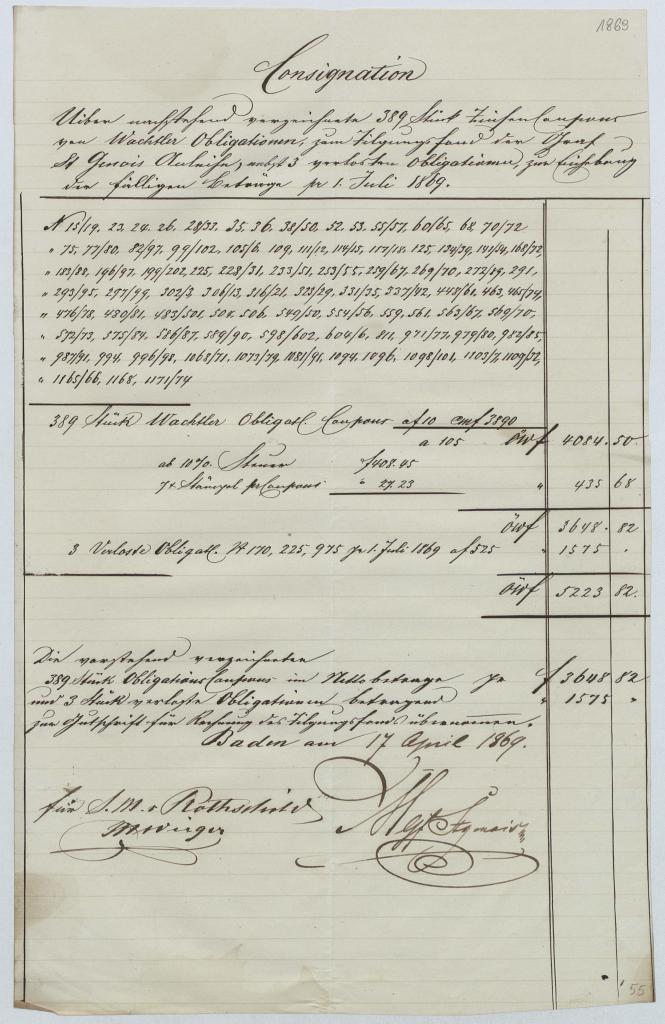 1869
Consignation
Uiber nachstehend verzeichnete 389 Stück Zinsen Coupons
von Wachtler Obligationen, zum Tilgungsfond der Graf
St Genois Anleihe, nebst 3 verlosten Obligationen, zur Einhebung
der fälligen Beträge pr 1. Juli 1869.
N 15/19, 23. 24. 26. 28/33. 35. 36. 38/50. 52. 53. 55/57. 60/65. 68. 70/72
" 75. 77/80. 82/97. 99/102. 105/6. 109. 111/12. 114/15. 117/18. 125. 134/39. 141/54. 168/72,
" 183/88. 196/97. 199/202, 225, 228/31, 233/51, 253/55, 259/67, 269/70, 272/89, 291,
" 293/95, 297/99, 302/3, 306/13, 316/21, 323/29, 331/35, 337/42, 448/61, 463, 465/74,
" 476/78, 480/81, 483/501, 504, 506, 549/50, 554/56, 559, 561, 563/67, 569/70,
" 572/73, 575/84, 586/87, 589/90, 598/602, 604/6, 811, 971/77, 979/80, 982/85,
" 987/91, 994, 996/98, 1068/71, 1073/79, 1081/91, 1094, 1096, 1098/101, 1103/7, 1109/32,
" 1165/66, 1168, 1171/74
389 Stück Wachtler Obligatl. Coupons a f 10 cmf 3890
a 105 öwf 4084. 50.
ab 10% Steuer f 408.45
7 x Stämpel pr Coupons " 27.23 " 435 68
öwf 3648. 82
3 Verloste Obligatl. N 170, 225, 975 pr 1. Juli 1869 a f 525 " 1575 .
öwf 5223 82.
Die vorstehend verzeichneten
389 Stück Obligations Coupons im Nettobetrage pr f 3648 82
und 3 Stück verloste Obligationen betragend " 1575 "
zur Gutschrift für Rechnung des Tilgungsfonds übernommen.
Baden am 17 April 1869.
für S. M. v Rothschild
Stgenois
55